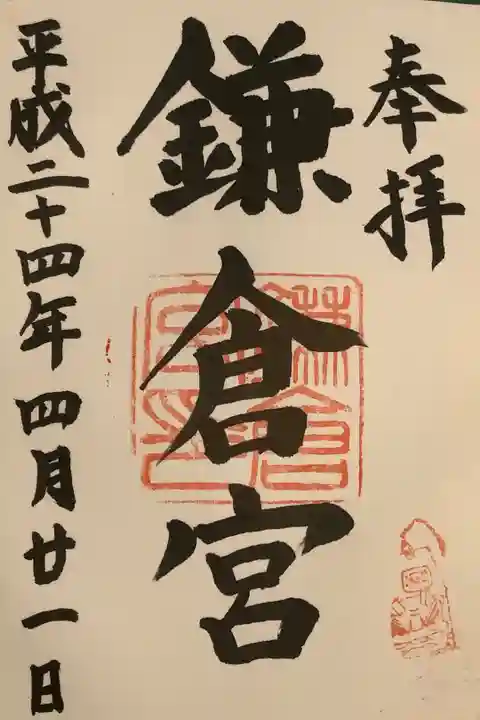 奉拝
鎌倉宮
鎌倉宮印
平成二十四年四月廿一日